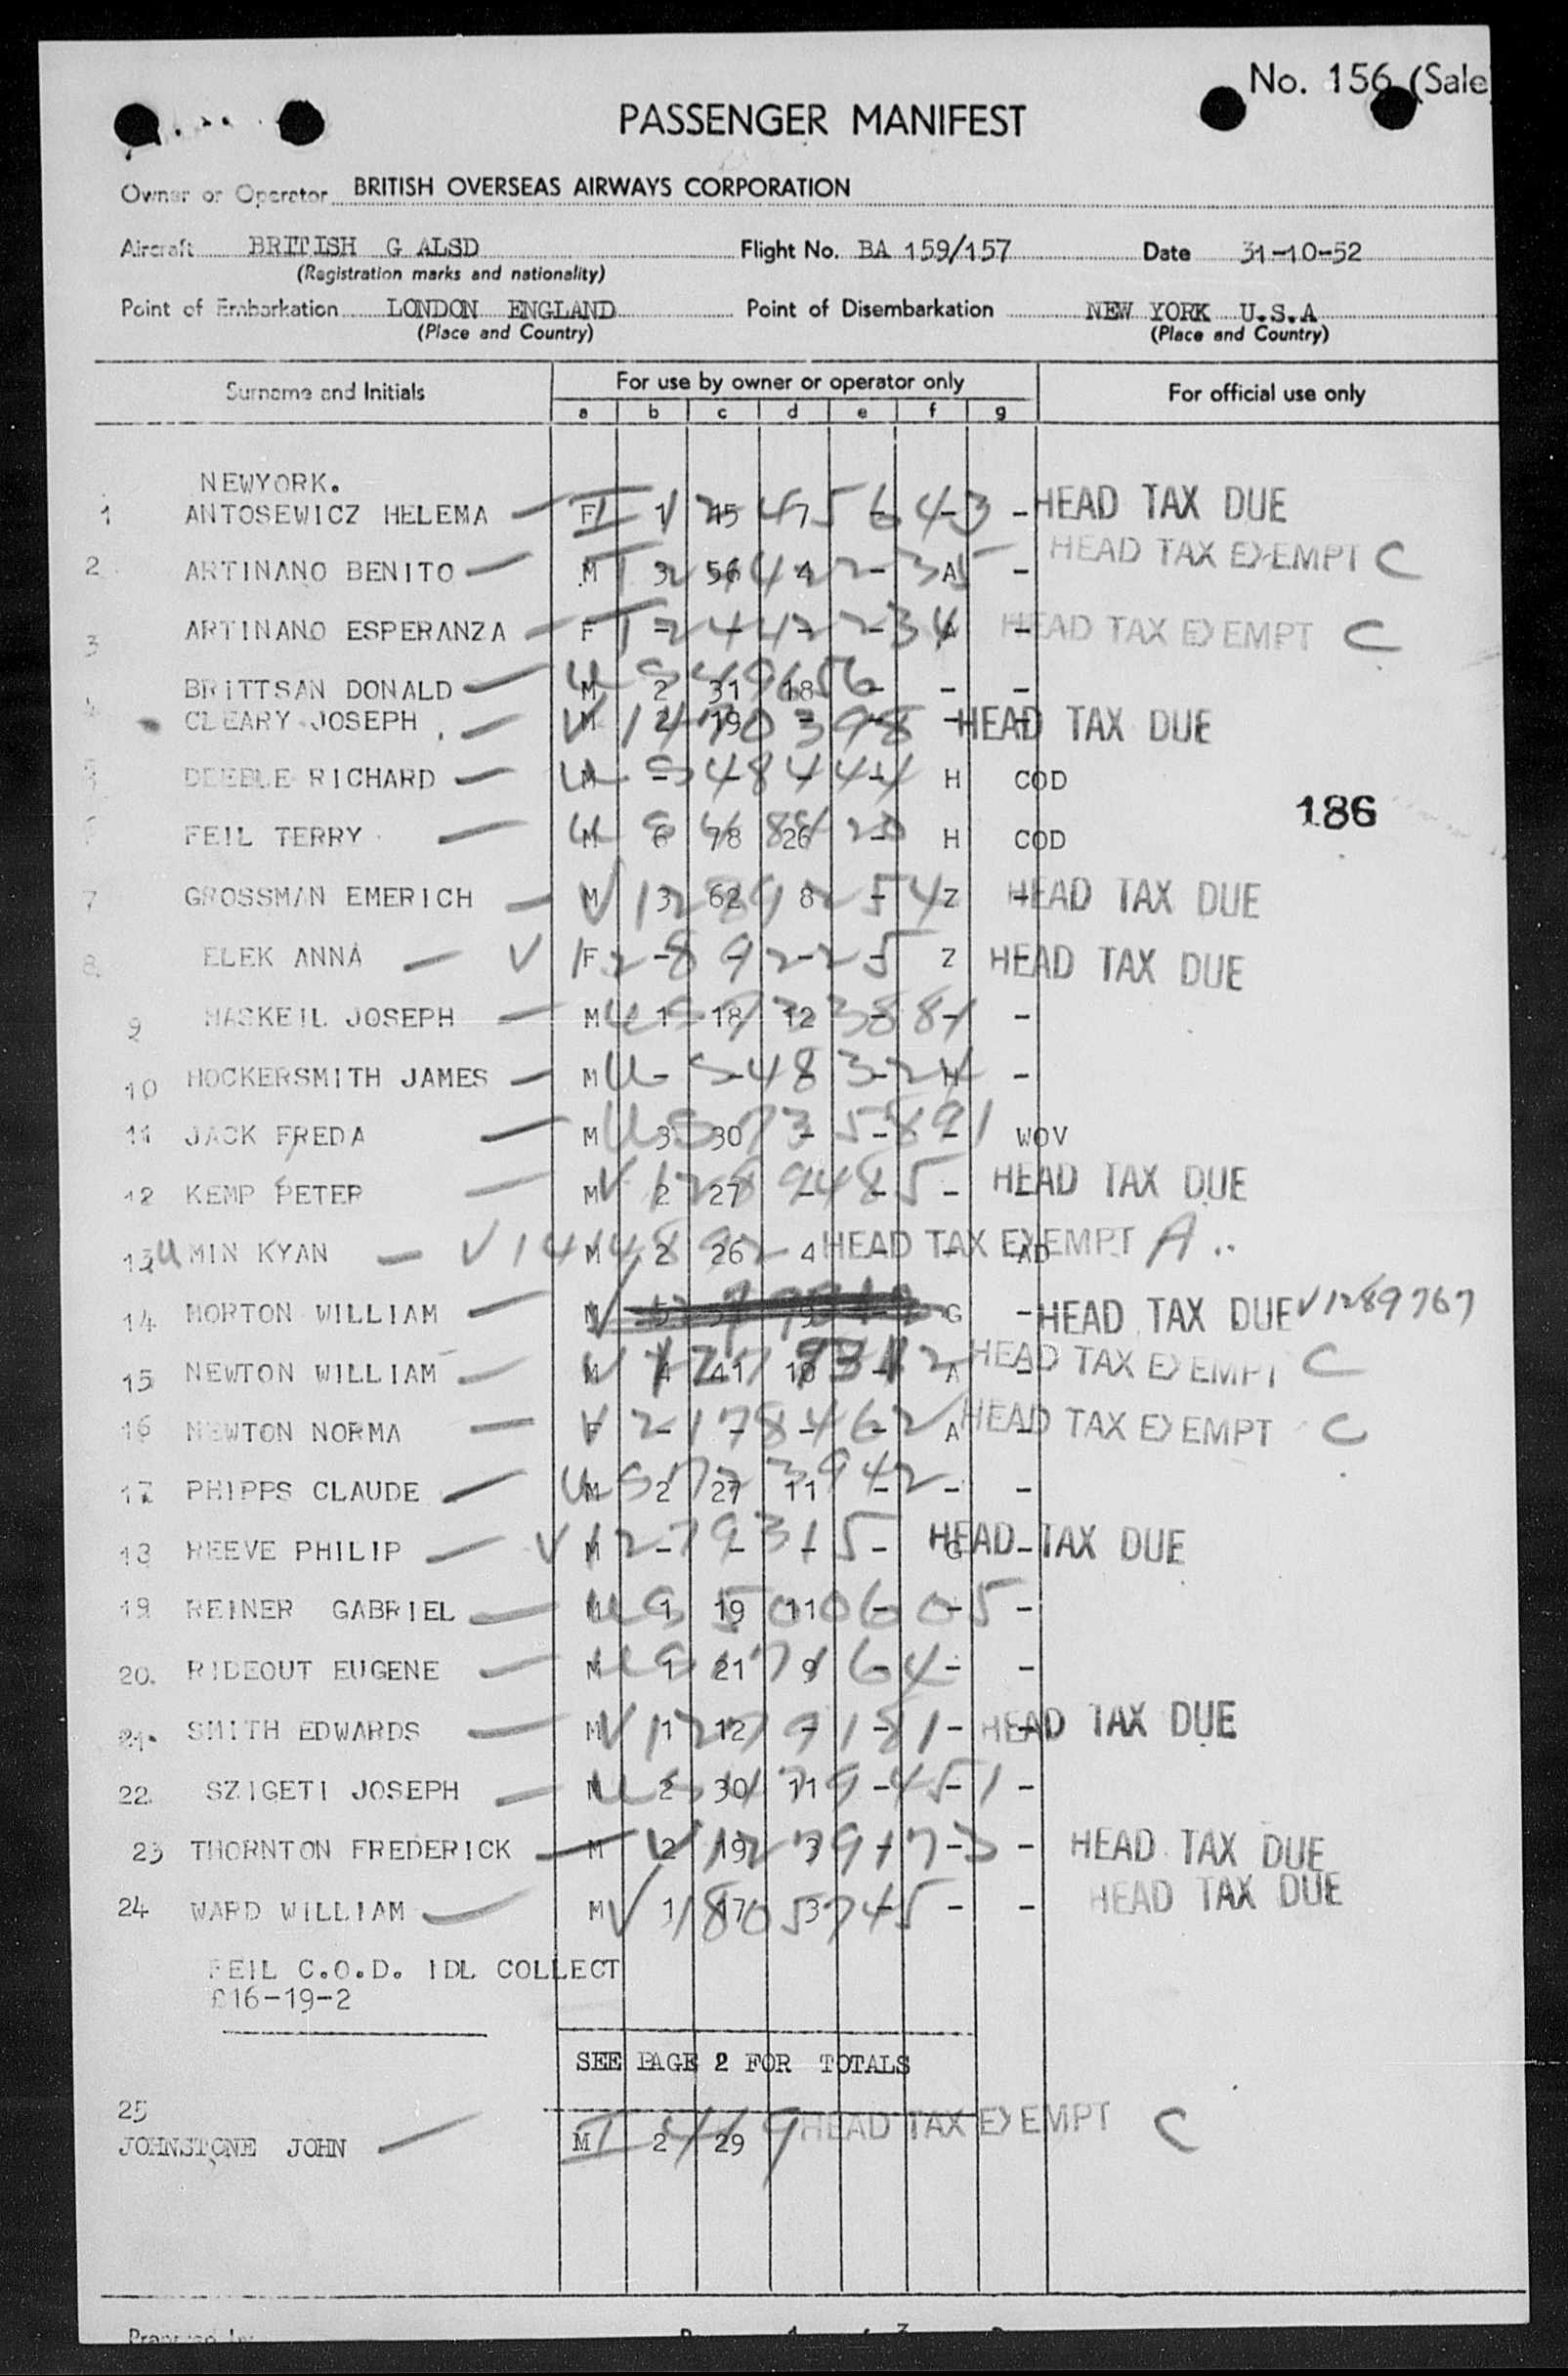 No. 156 (Sale
PASSENGER MANIFEST
Owner or Operator BRITISH OVERSEAS AIRWAYS CORPORATION
Aircraft BRITISH G ALSD Flight No. BA 159/157 Date 31-10-52
(Registration marks and nationality)
Point of Embarkation LONDON ENGLAND Point of Disembarkation NEW YORK U.S.A
(Place and Country) (Place and Country)
Surname and Initials For use by owner or operator only For official use only
a b c d e f g
NEWYORK.
1 ANTOSEWICZ HELEMA — F 1 45 7 - - - HEAD TAX DUE
2 ARTINANO BENITO — M 3 56 4 - A - HEAD TAX EXEMPT C
3 ARTINANO ESPERANZA — F - - - - A - HEAD TAX EXEMPT C
BRITTSAN DONALD — M 2 31 18 - - -
CLEARY JOSEPH — M 2 19 - - - - HEAD TAX DUE
DEEBLE RICHARD — M - - - - H COD
186
FEIL TERRY — M 6 78 26 - H COD
7 GROSSMAN EMERICH — M 3 62 8 - Z - HEAD TAX DUE
8 ELEK ANNA — V 1289225 F - - - - Z - HEAD TAX DUE
9 HASKEIL JOSEPH — M 1 18 12 - - -
10 HOCKERSMITH JAMES — M - - - - H -
11 JACK FREDA — M 3 30 - - - WOV
12 KEMP PETER — M 2 27 - - - - HEAD TAX DUE
13 MIN KYAN — M 2 26 4 - - AD HEAD TAX EXEMPT A
14 MORTON WILLIAM — M G - HEAD TAX DUE V1289767
15 NEWTON WILLIAM — M 4 41 18 - A - HEAD TAX EXEMPT C
16 NEWTON NORMA — V 2178462 F - - - - A - HEAD TAX EXEMPT C
17 PHIPPS CLAUDE — M 2 27 11 - - -
18 REEVE PHILIP — V 1279315 M - - - - G - HEAD TAX DUE
19 REINER GABRIEL — M 1 19 11 - - -
20. RIDEOUT EUGENE — M 1 21 9 - - -
21. SMITH EDWARDS — M 1 12 - - - - HEAD TAX DUE
22. SZIGETI JOSEPH — M 2 30 11 - - -
23 THORNTON FREDERICK — M 2 19 3 - - - HEAD TAX DUE
24 WARD WILLIAM — M 1 17 3 - - - HEAD TAX DUE
FEIL C.O.D. IDL COLLECT
£16-19-2
SEE PAGE 2 FOR TOTALS
25
JOHNSTONE JOHN — M 2 29 HEAD TAX EXEMPT C